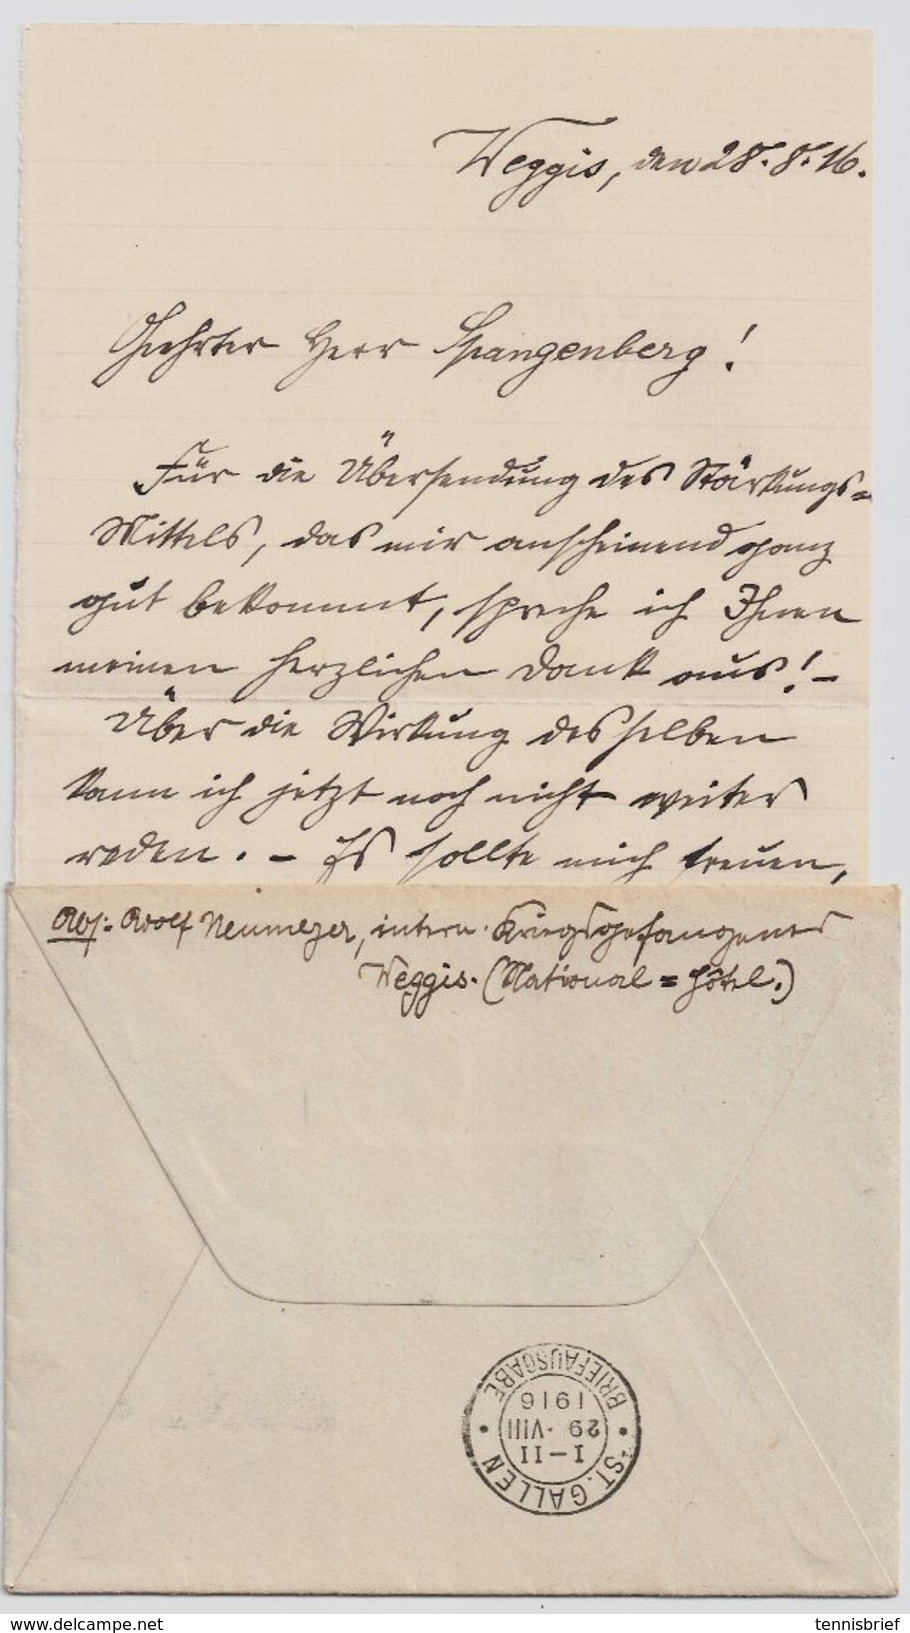 Weggis, den 28.8.16.
Geehrter Herr Spangenberg!
Für die Übersendung des Stärkungs=
Mittels, das mir anscheinend ganz
gut bekommt, spreche ich Ihnen
meinen herzlichen Dank aus! –
Über die Wirkung desselben
kann ich jetzt noch nicht weiter
reden. – Es sollte mich freuen,
Abs: Adolf Neumeyer, intern. Kriegsgefangener
Weggis. (National=Hôtel.)
ST. GALLEN
I–II
29.VIII
1916
BRIEFAUSGABE
delcampe.net
tennisbrief